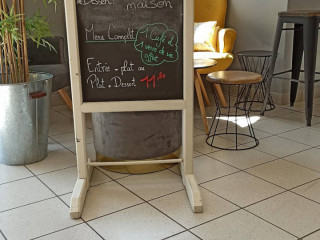 Dessert maison
Menu Complet
1 Café
1 verre de vin
offert
Entrée - plat ou
Plat - Dessert 11.50